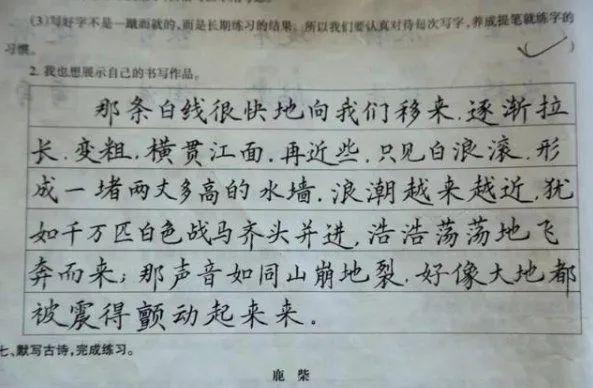 (3)写好字不是一蹴而就的,而是长期练习的结果。所以我们要认真对待每次写字,养成提笔就练字的
习惯。 (✓)
2. 我也想展示自己的书写作品。
那条白线很快地向我们移来.逐渐拉
长.变粗.横贯江面.再近些.只见白浪滚.形
成一堵两丈多高的水墙.浪潮越来越近.犹
如千万匹白色战马齐头并进,浩浩荡荡地飞
奔而来;那声音如同山崩地裂.好像大地都
被震得颤动起来来。
七、默写古诗,完成练习。
鹿 柴